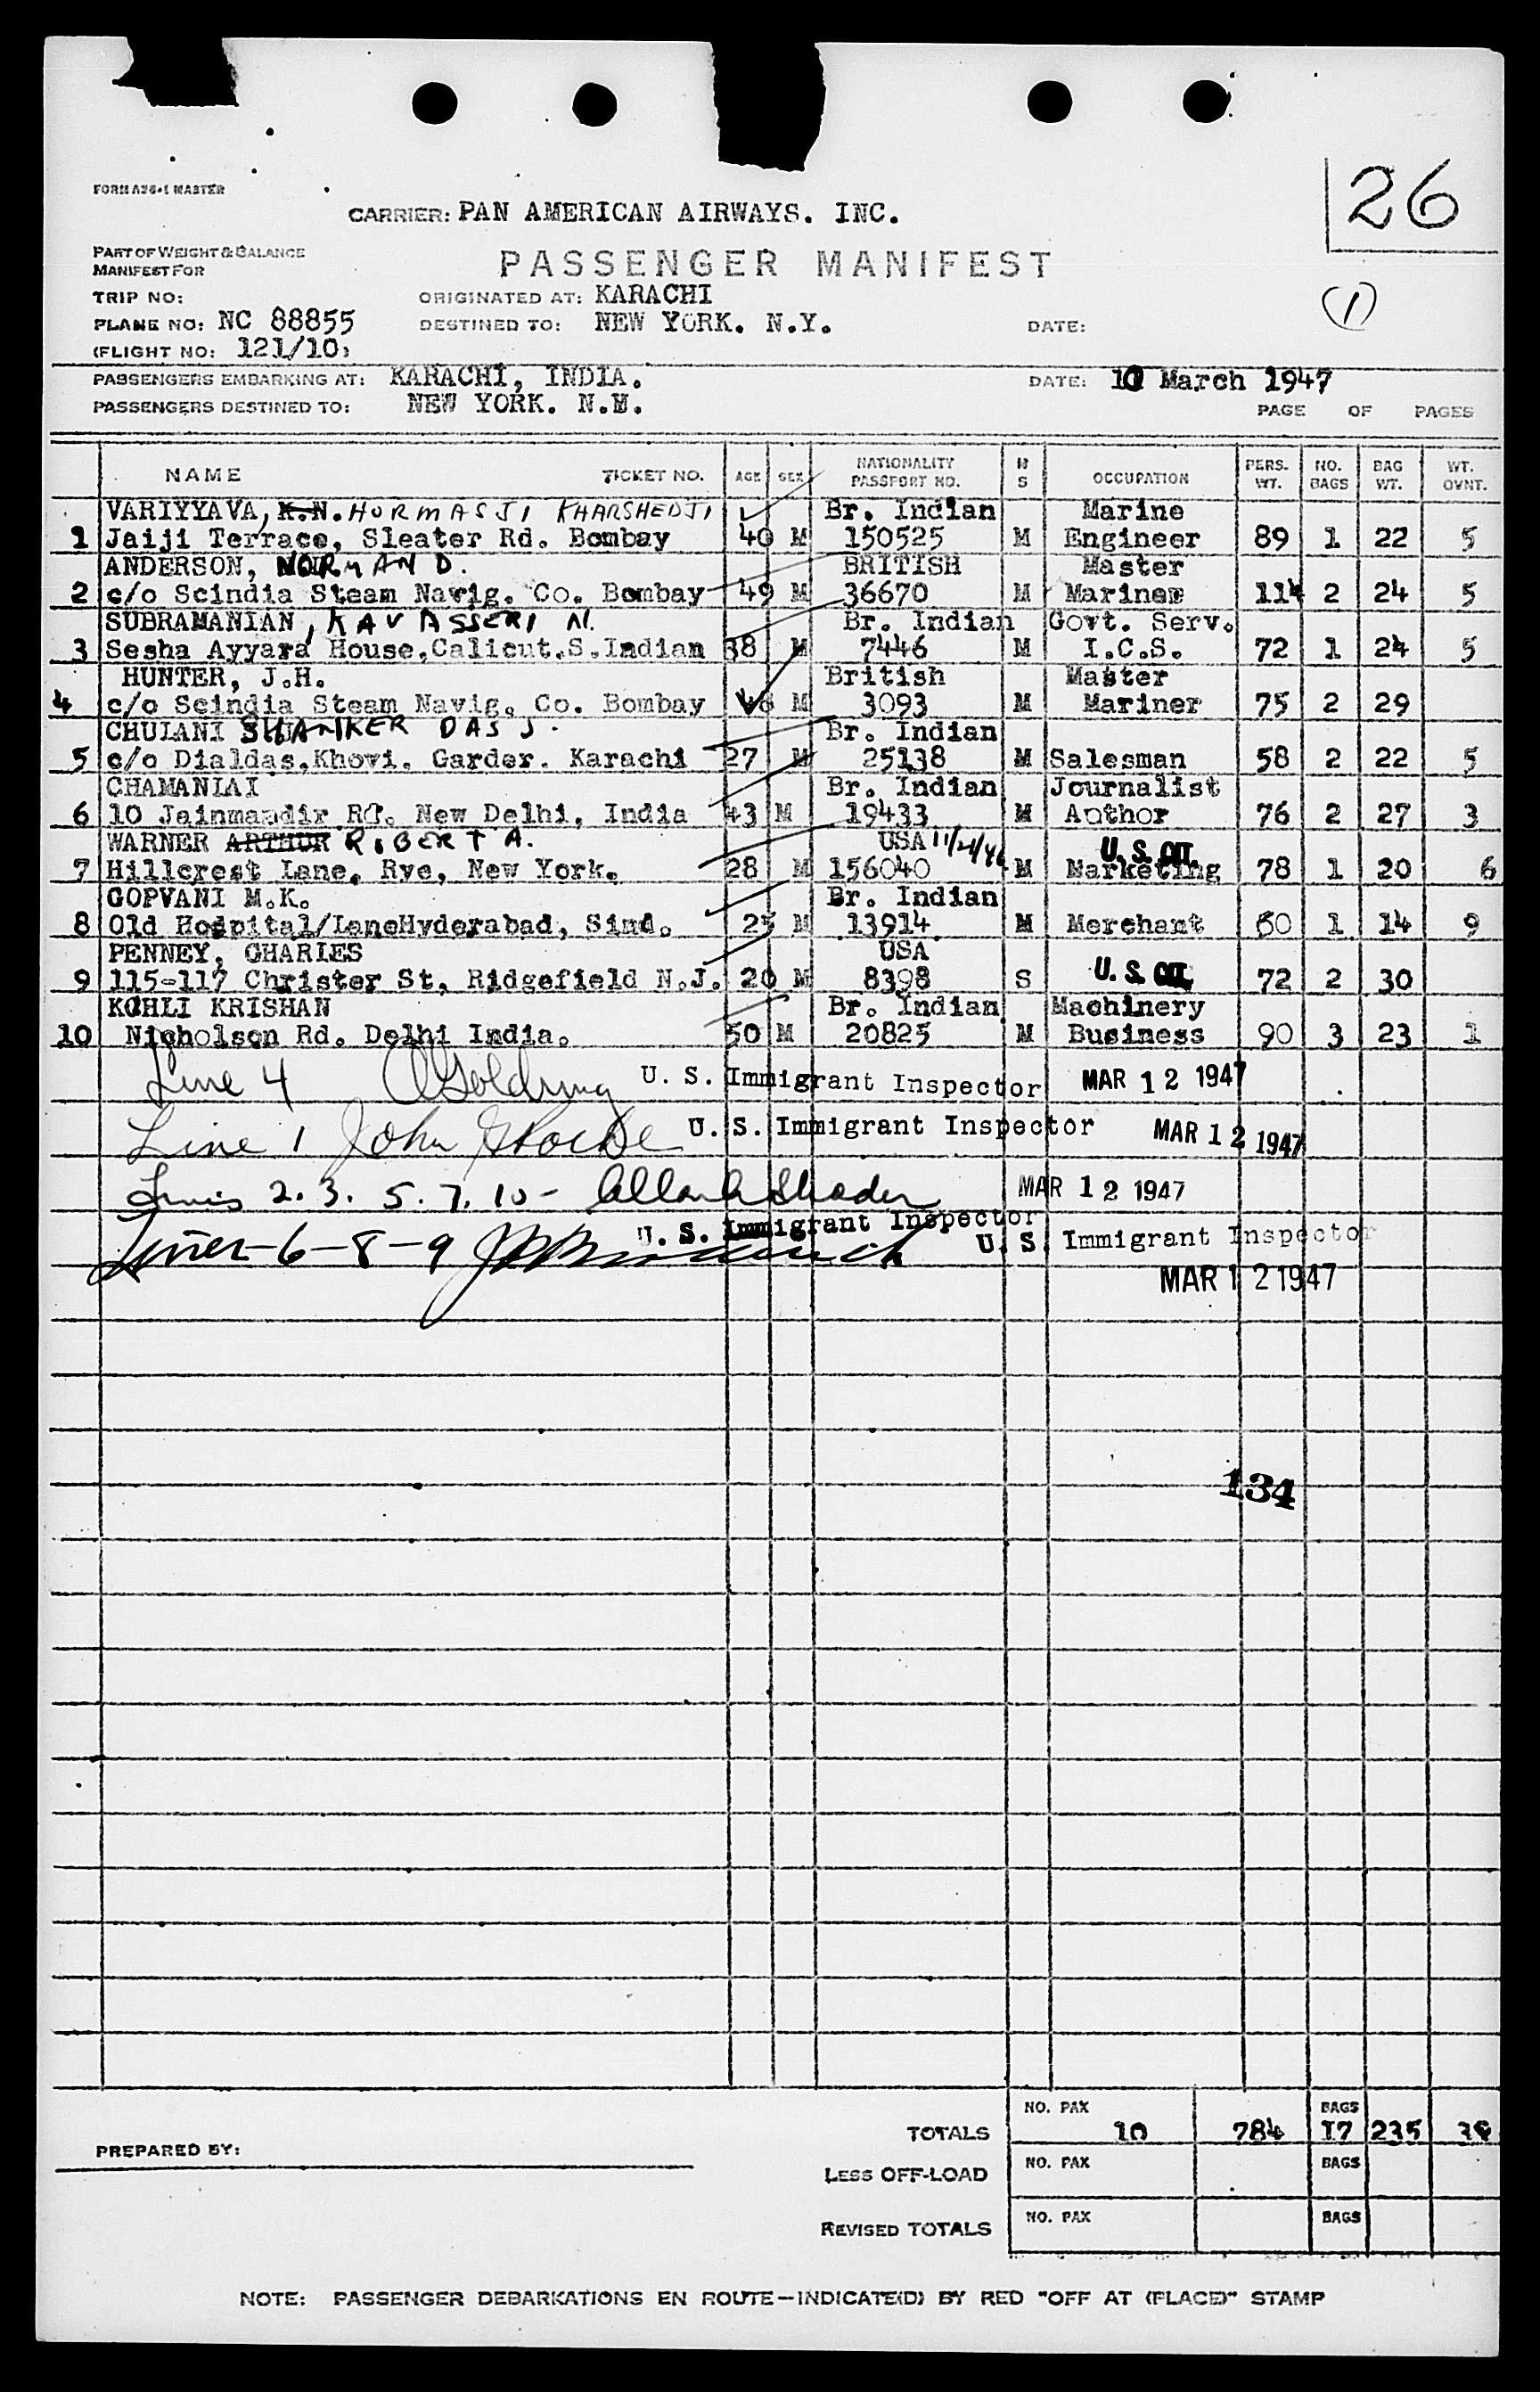 26
FORM A36-1 MASTER
CARRIER: PAN AMERICAN AIRWAYS. INC.
PART OF WEIGHT & BALANCE
MANIFEST FOR
PASSENGER MANIFEST
TRIP NO:
ORIGINATED AT: KARACHI
1
PLANE NO: NC 88855
DESTINED TO: NEW YORK. N.Y.
DATE:
(FLIGHT NO: 121/10)
PASSENGERS EMBARKING AT: KARACHI, INDIA.
DATE: 10 March 1947
PASSENGERS DESTINED TO: NEW YORK. N.Y.
PAGE OF PAGES
NAME TICKET NO. AGE SEX NATIONALITY PASSPORT NO. M S OCCUPATION PERS. WT. NO. BAGS BAG WT. WT. OVNT.
VARIYYAVA, K.N. HORMASJI KHARSHEDJI Br. Indian Marine
1 Jaiji Terrace, Sleater Rd. Bombay 40 M 150525 M Engineer 89 1 22 5
ANDERSON, NORMAN D. BRITISH Master
2 c/o Scindia Steam Navig. Co. Bombay 49 M 36670 M Mariner 114 2 24 5
SUBRAMANIAN, KAVASSERI N. Br. Indian Govt. Serv.
3 Sesha Ayyara House,Calicut.S.Indian 38 M 7446 M I.C.S. 72 1 24 5
HUNTER, J.H. British Master
4 c/o Scindia Steam Navig. Co. Bombay M 3093 M Mariner 75 2 29
CHULANI SHANKER DAS J. Br. Indian
5 c/o Dialdas,Khovi. Garder. Karachi 27 M 25138 M Salesman 58 2 22 5
CHAMANLAI Br. Indian Journalist
6 10 Jainmandir Rd. New Delhi, India 43 M 19433 M Author 76 2 27 3
WARNER ARTHUR ROBERT A. USA 11/21/46 U. S. CIT.
7 Hillcrest Lane, Rye, New York. 28 M 156040 M Marketing 78 1 20 6
GOPVANI M.K. Br. Indian
8 Old Hospital/LaneHyderabad, Sind. 25 M 13914 M Merchant 60 1 14 9
PENNEY, CHARLES USA U. S. CIT.
9 115-117 Christer St, Ridgefield N.J. 20 M 8398 S 72 2 30
KOHLI KRISHAN Br. Indian Machinery
10 Nicholson Rd. Delhi India. 50 M 20825 M Business 90 3 23 1
Line 4 Goldring U. S. Immigrant Inspector MAR 12 1947
Line 1 John U. S. Immigrant Inspector MAR 12 1947
Lines 2. 3. 5. 7. 10 - Allan MAR 12 1947
U. S. Immigrant Inspector
Lines - 6 - 8 - 9 U. S. Immigrant Inspector
MAR 12 1947
134
TOTALS NO. PAX 10 784 BAGS 17 235
PREPARED BY:
LESS OFF-LOAD NO. PAX BAGS
REVISED TOTALS NO. PAX BAGS
NOTE: PASSENGER DEBARKATIONS EN ROUTE-INDICATE(D) BY RED "OFF AT (PLACE)" STAMP